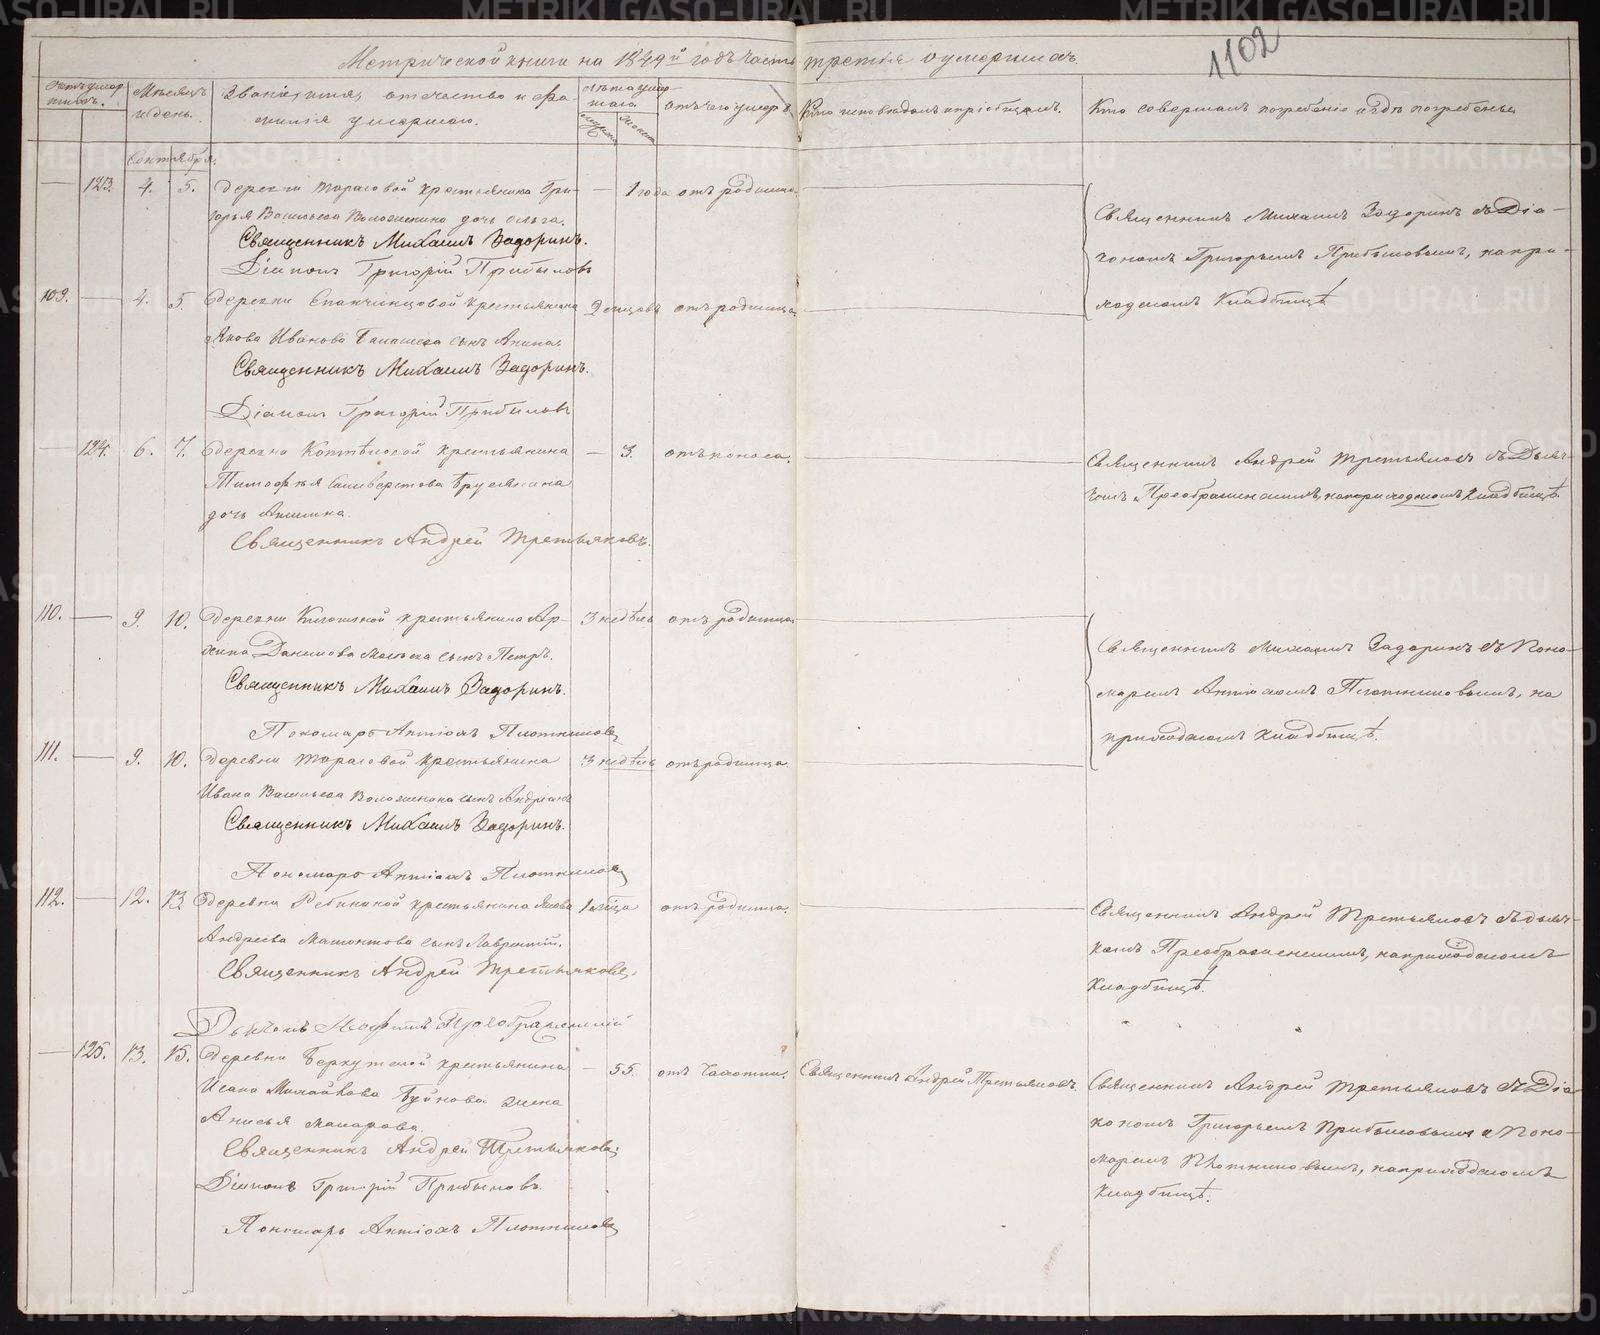 1102
Метрической книги на 1849й годъ часть третія о умершихъ.
Мѣсяцъ и день.
Званіе, имя, отечество и фамилія умершаго.
Лѣта умершаго.
отъ чего умеръ
Кто исповѣдалъ и пріобщалъ.
Кто совершалъ погребеніе и гдѣ погребены
Сентября.
123. 4. 5. деревни Тарасовой крестьянина Гри-
горья Васильева дочь Ольга. 1 года отъ родимца
Священникъ Михаилъ Задоринъ.
Діаконъ Григорій Прибыловъ
Священникъ Михаилъ Задоринъ съ Діа-
кономъ Григорьемъ Прибыловымъ, на при-
ходскомъ Кладбищѣ
109. 4. 5 деревни крестьянина
Якова Иванова сынъ 2 отъ родимца
Священникъ Михаилъ Задоринъ.
Діаконъ Григорій Прибыловъ
124. 6. 7. деревни крестьянина 3. отъ поноса.
Тимофея Селиверстова
дочь
Священникъ Андрей Третьяковъ.
Священникъ Андрей Третьяковъ съ Дьяч-
комъ Преображенскимъ, на приходскомъ Кладбищѣ.
110. 9. 10. деревни крестьянина Ар-
хипа Данилова сынъ Петръ. 3 недѣль отъ родимца
Священникъ Михаилъ Задоринъ.
Пономарь Антіохъ Плотниковъ
Священникъ Михаилъ Задоринъ съ Поно-
маремъ Антіохомъ Плотниковымъ, на
приходскомъ кладбищѣ.
111. 9. 10. деревни Тарасовой крестьянина
Ивана Васильева сынъ Андріанъ 3 недѣль отъ родимца
Священникъ Михаилъ Задоринъ.
Пономарь Антіохъ Плотниковъ
112. 12. 13 деревни крестьянина Якова
Андреева Мамонтова сынъ Лаврентій. отъ родимца.
Священникъ Андрей Третьяковъ.
Дьячокъ Преображенскій
Священникъ Андрей Третьяковъ съ дьяч-
комъ Преображенскимъ, на приходскомъ
Кладбищѣ.
125. 13. 15. деревни крестьянина 55. отъ чахотки.
Исака Михайлова жена
Анисья Макарова.
Священникъ Андрей Третьяковъ
Діаконъ Григорій Прибыловъ.
Пономарь Антіохъ Плотниковъ
Священникъ Андрей Третьяковъ.
Священникъ Андрей Третьяковъ съ Діа
кономъ Григорьемъ Прибыловымъ и Поно-
маремъ Плотниковымъ, на приходскомъ
Кладбищѣ.
METRIKI.GASO-URAL.RU